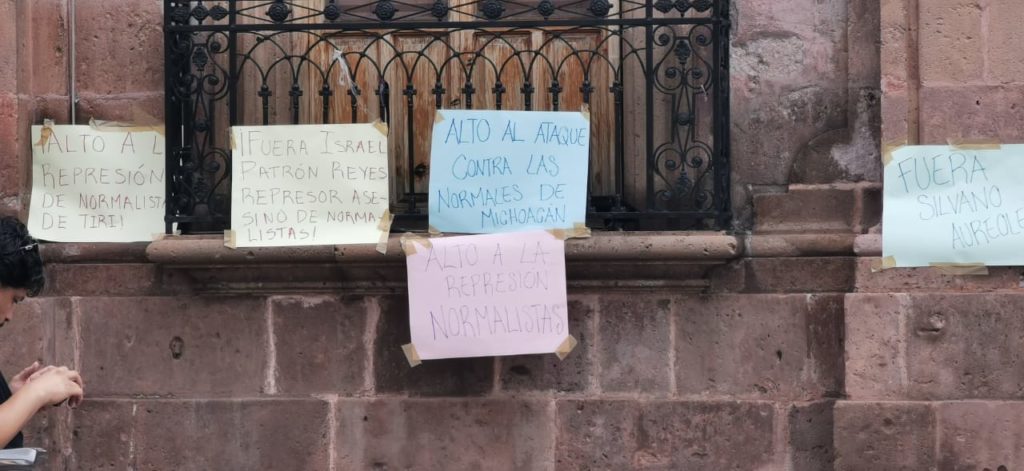 ALTO A L
REPRESIÓN
DE NORMALISTA
DE TIRI!
¡FUERA ISRAEL
PATRÓN REYES
REPRESOR ASE-
SINO DE NORMA-
LISTAS!
ALTO AL ATAQUE
CONTRA LAS
NORMALES DE
MICHOACÁN
ALTO A LA
REPRESIÓN
NORMALISTAS
FUERA
SILVANO
AUREOLE